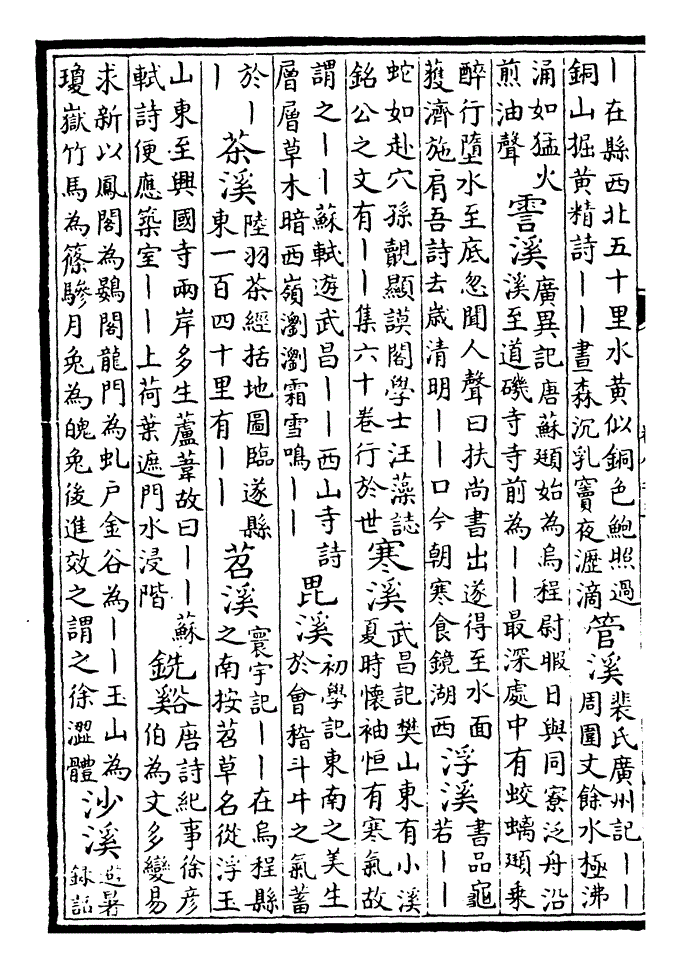 丨在縣西北五十里水黃似銅色鮑照過
銅山掘黃精詩丨丨晝森沉乳竇夜瀝滴
管溪
裴氏廣州記丨丨
周圍丈餘水極沸
涌如猛火
煎油聲
霅溪
廣異記唐蘇頲始為烏程尉暇日與同寮泛舟沿
溪至道磯寺寺前為丨丨最深處中有蛟螭頲乗
醉行墮水至底忽聞人聲曰扶尚書出遂得至水面
獲濟施肩吾詩去歳清明丨丨口今朝寒食鏡湖西
浮溪
書品龜
若丨丨
蛇如赴穴孫覿顯謨閣學士汪藻誌
銘公之文有丨丨集六十卷行於世
寒溪
武昌記樊山東有小溪
夏時懷袖恒有寒氣故
謂之丨丨蘇軾遊武昌丨丨西山寺詩
層層草木暗西嶺瀏瀏霜雪鳴丨丨
毘溪
初學記東南之美生
於會稽斗牛之氣蓄
於丨
丨
茶溪
陸羽茶經括地圖臨遂縣
東一百四十里有丨丨
苕溪
寰宇記丨丨在烏程縣
之南按苕草名從浮玉
山東至興國寺兩岸多生蘆葦故曰丨丨蘇
軾詩便應築室丨丨上荷葉遮門水浸階
銑谿
唐詩紀事徐彦
伯為文多變易
求新以鳳閣為鷃閣龍門為虬戸金谷為丨丨玉山為
瓊嶽竹馬為篠驂月兎為魄兎後進效之謂之徐澀體
沙溪
避暑
録話